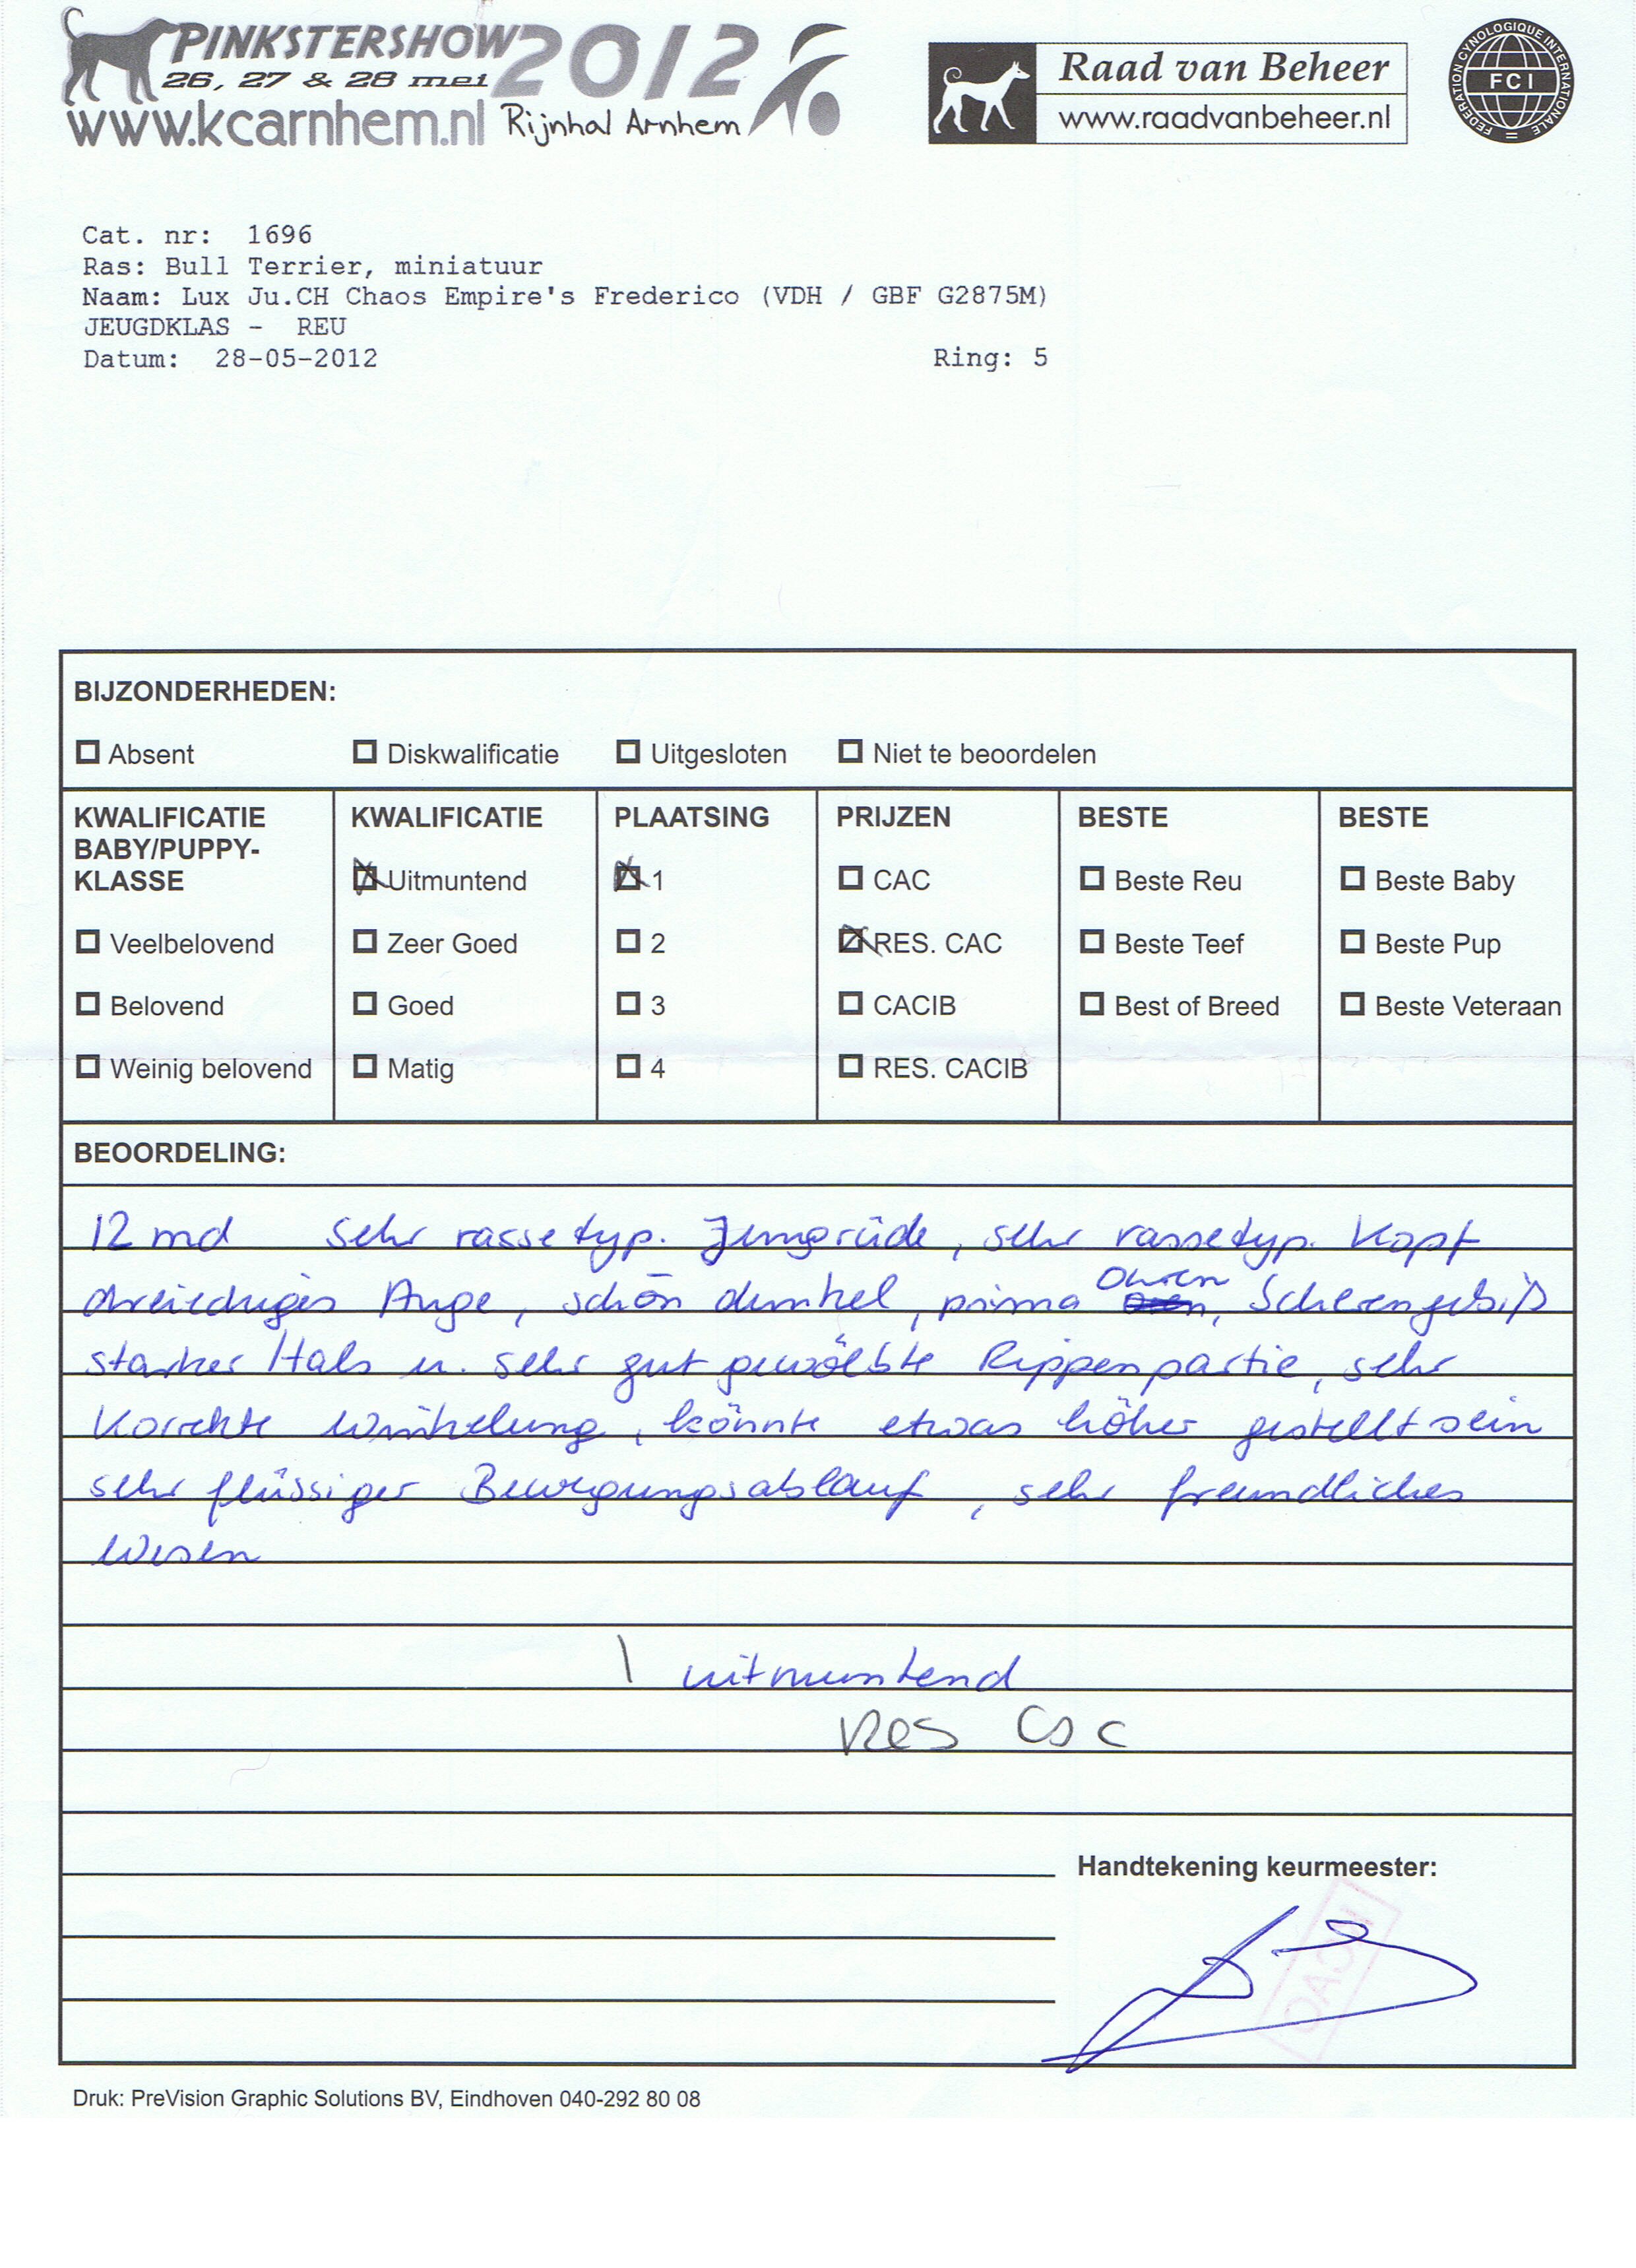 PINKSTERSHOW 2012
26, 27 & 28 mei
www.kcarnhem.nl Rijnhal Arnhem
Raad van Beheer
www.raadvanbeheer.nl
FEDERATION CYNOLOGIQUE INTERNATIONALE
FCI
Cat. nr: 1696
Ras: Bull Terrier, miniatuur
Naam: Lux Ju.CH Chaos Empire's Frederico (VDH / GBF G2875M)
JEUGDKLAS - REU
Datum: 28-05-2012 Ring: 5
BIJZONDERHEDEN:
Absent Diskwalificatie Uitgesloten Niet te beoordelen
KWALIFICATIE BABY/PUPPY-KLASSE
Veelbelovend
Belovend
Weinig belovend
KWALIFICATIE
Uitmuntend
Zeer Goed
Goed
Matig
PLAATSING
1
2
3
4
PRIJZEN
CAC
RES. CAC
CACIB
RES. CACIB
BESTE
Beste Reu
Beste Teef
Best of Breed
BESTE
Beste Baby
Beste Pup
Beste Veteraan
BEOORDELING:
12 md sehr rassetyp. Jungrüde, sehr rassetyp. Kopf
dreieckiges Auge, schön dunkel, prima Ohren, Scherengebiß
starker Hals u. sehr gut gewölbte Rippenpartie, sehr
korrekte Winkelung, könnte etwas höher gestellt sein
sehr flüssiger Bewegungsablauf, sehr freundliches
Wesen
1 uitmuntend
Res CAC
Handtekening keurmeester:
Druk: PreVision Graphic Solutions BV, Eindhoven 040-292 80 08